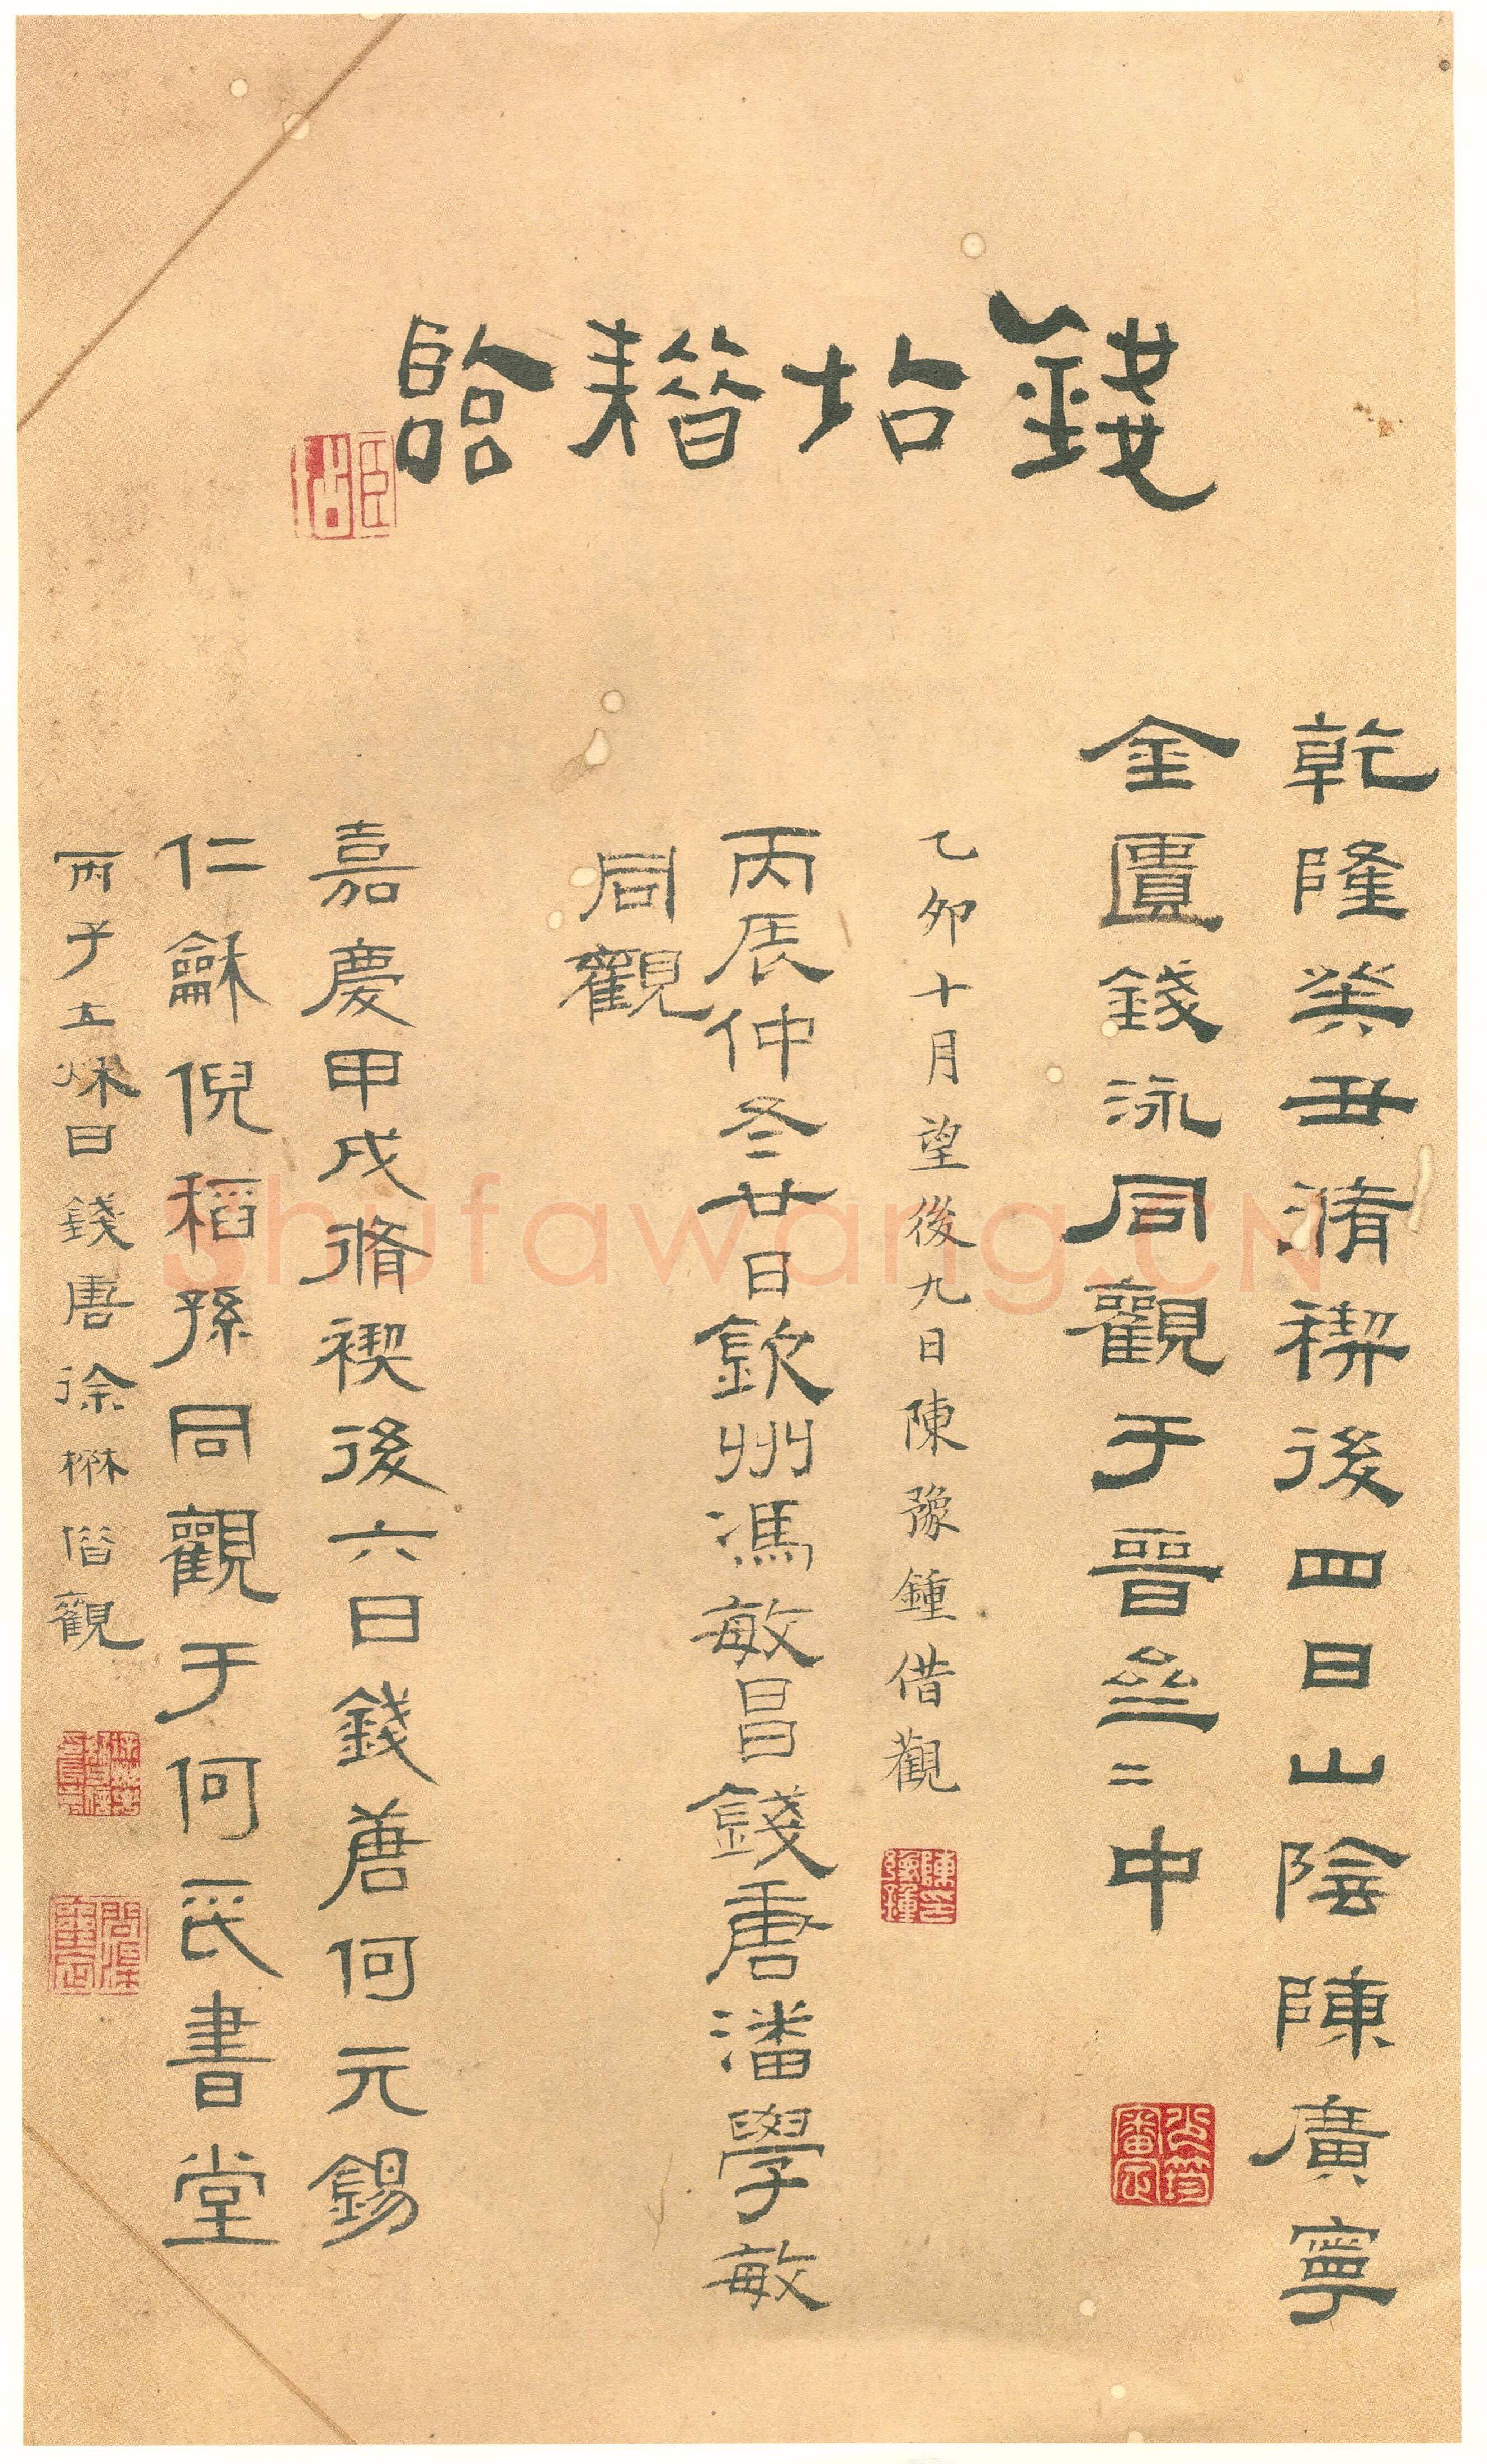 錢坫耤臨
臣坫
乾隆癸丑脩禊後四日山陰陳廣寧
金匱錢泳同觀于晉叁二中
乙卯十月望後九日陳豫鍾借觀
陳豫鍾印
丙辰仲冬廿日欽州馮敏昌錢唐潘學敏
同觀
嘉慶甲戌脩禊後六日錢唐何元錫
仁龢倪稻孫同觀于何氏書堂
丙子立秌日錢唐徐楙借觀
問渠審定
Shufawang.CN